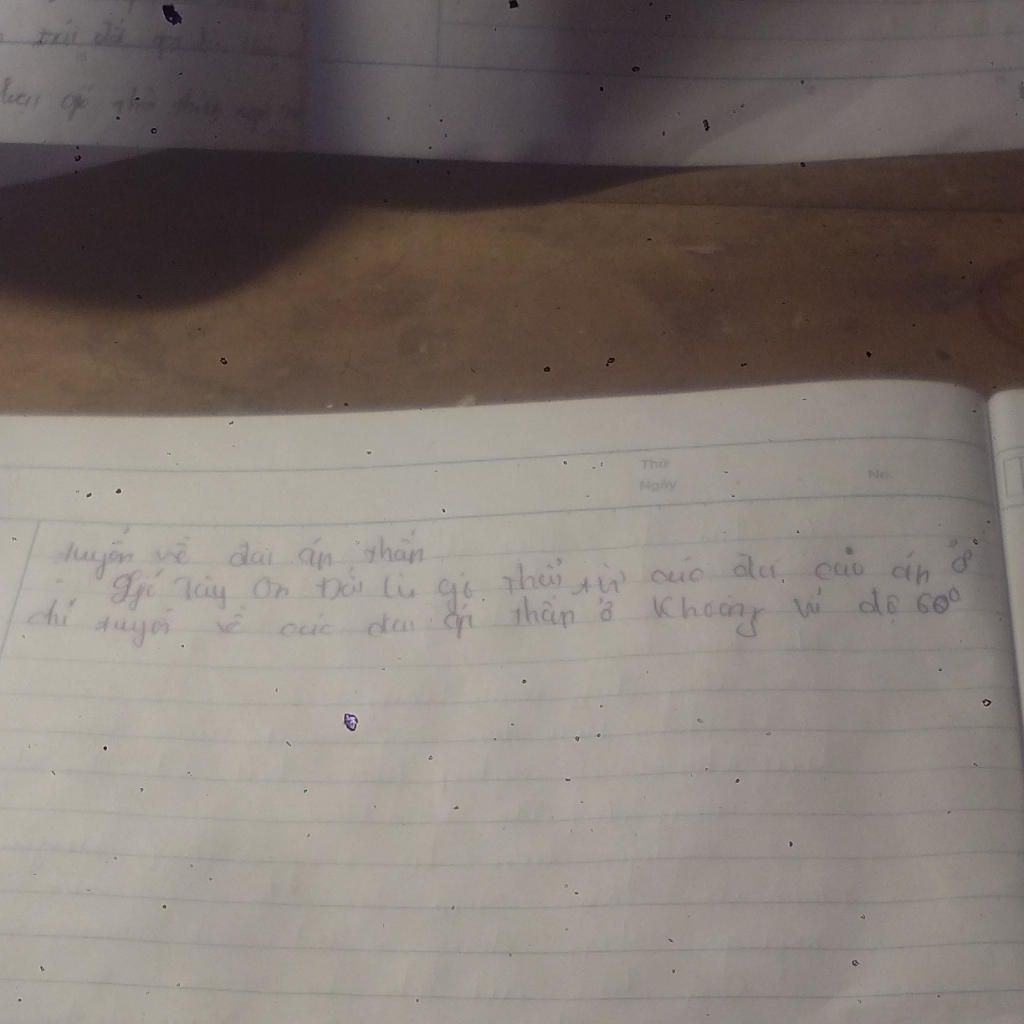 trái đất
gió thổi
Thứ
Ngày
No.
tuyến về đai áp thấp
Gió Tây Ôn Đới là gió thổi từ các đai cao áp ở
chí tuyến về các đai áp thấp ở Khoảng vĩ độ 60⁰